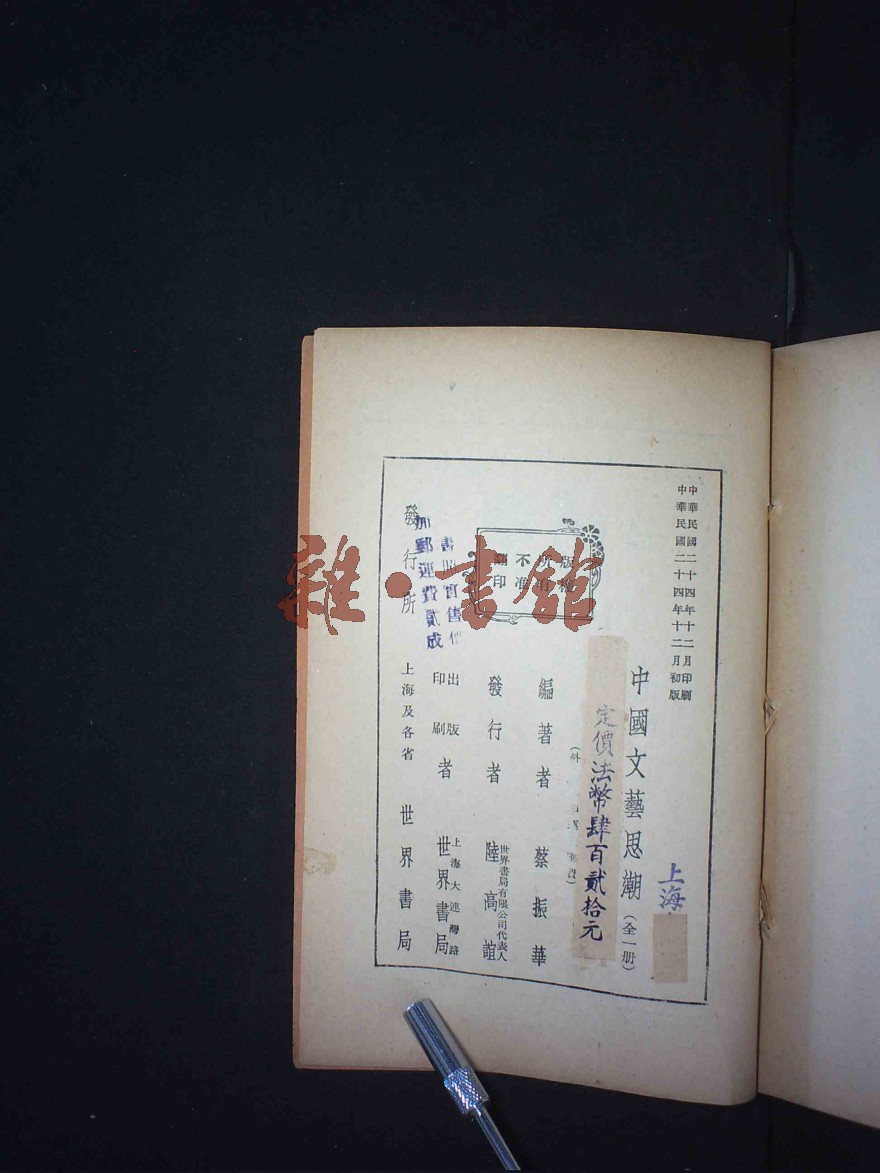 中華民國二十四年十二月印刷
中華民國二十四年十二月初版
上海
中國文藝思潮(全一册)
定價法幣肆百貳拾元
(外
編著者 蔡振華
發行者 世界書局有限公司代表人 陸高誼
出版
印刷
者 上海大連灣路 世界書局
發行所 上海及各省 世界書局
版權
所有
不准
翻印
加郵運費貳成
雜·書館